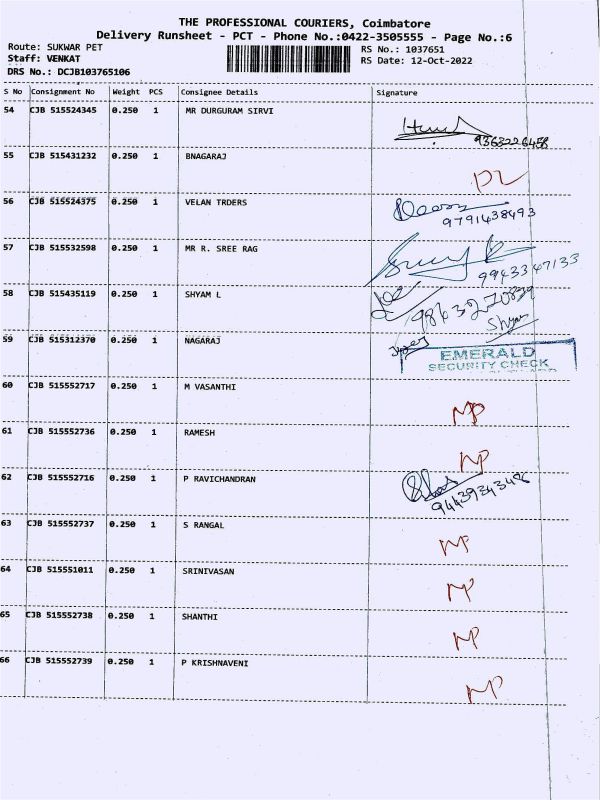 THE PROFESSIONAL COURIERS, Coimbatore
Delivery Runsheet - PCT - Phone No.:0422-3505555 - Page No.:6
Route: SUKWAR PET RS No.: 1037651
Staff: VENKAT RS Date: 12-Oct-2022
DRS No.: DCJB103765106
S No Consignment No Weight PCS Consignee Details Signature
54 CJB 515524345 0.250 1 MR DURGURAM SIRVI
9363226458
55 CJB 515431232 0.250 1 BNAGARAJ
DL
56 CJB 515524375 0.250 1 VELAN TRDERS
9791438493
57 CJB 515532598 0.250 1 MR R. SREE RAG
9943347133
58 CJB 515435119 0.250 1 SHYAM L
Shyam
59 CJB 515312370 0.250 1 NAGARAJ
EMERALD
SECURITY CHECK
60 CJB 515552717 0.250 1 M VASANTHI
NP
61 CJB 515552736 0.250 1 RAMESH
NP
62 CJB 515552716 0.250 1 P RAVICHANDRAN
63 CJB 515552737 0.250 1 S RANGAL
NP
64 CJB 515551011 0.250 1 SRINIVASAN
NP
65 CJB 515552738 0.250 1 SHANTHI
NP
66 CJB 515552739 0.250 1 P KRISHNAVENI
NP